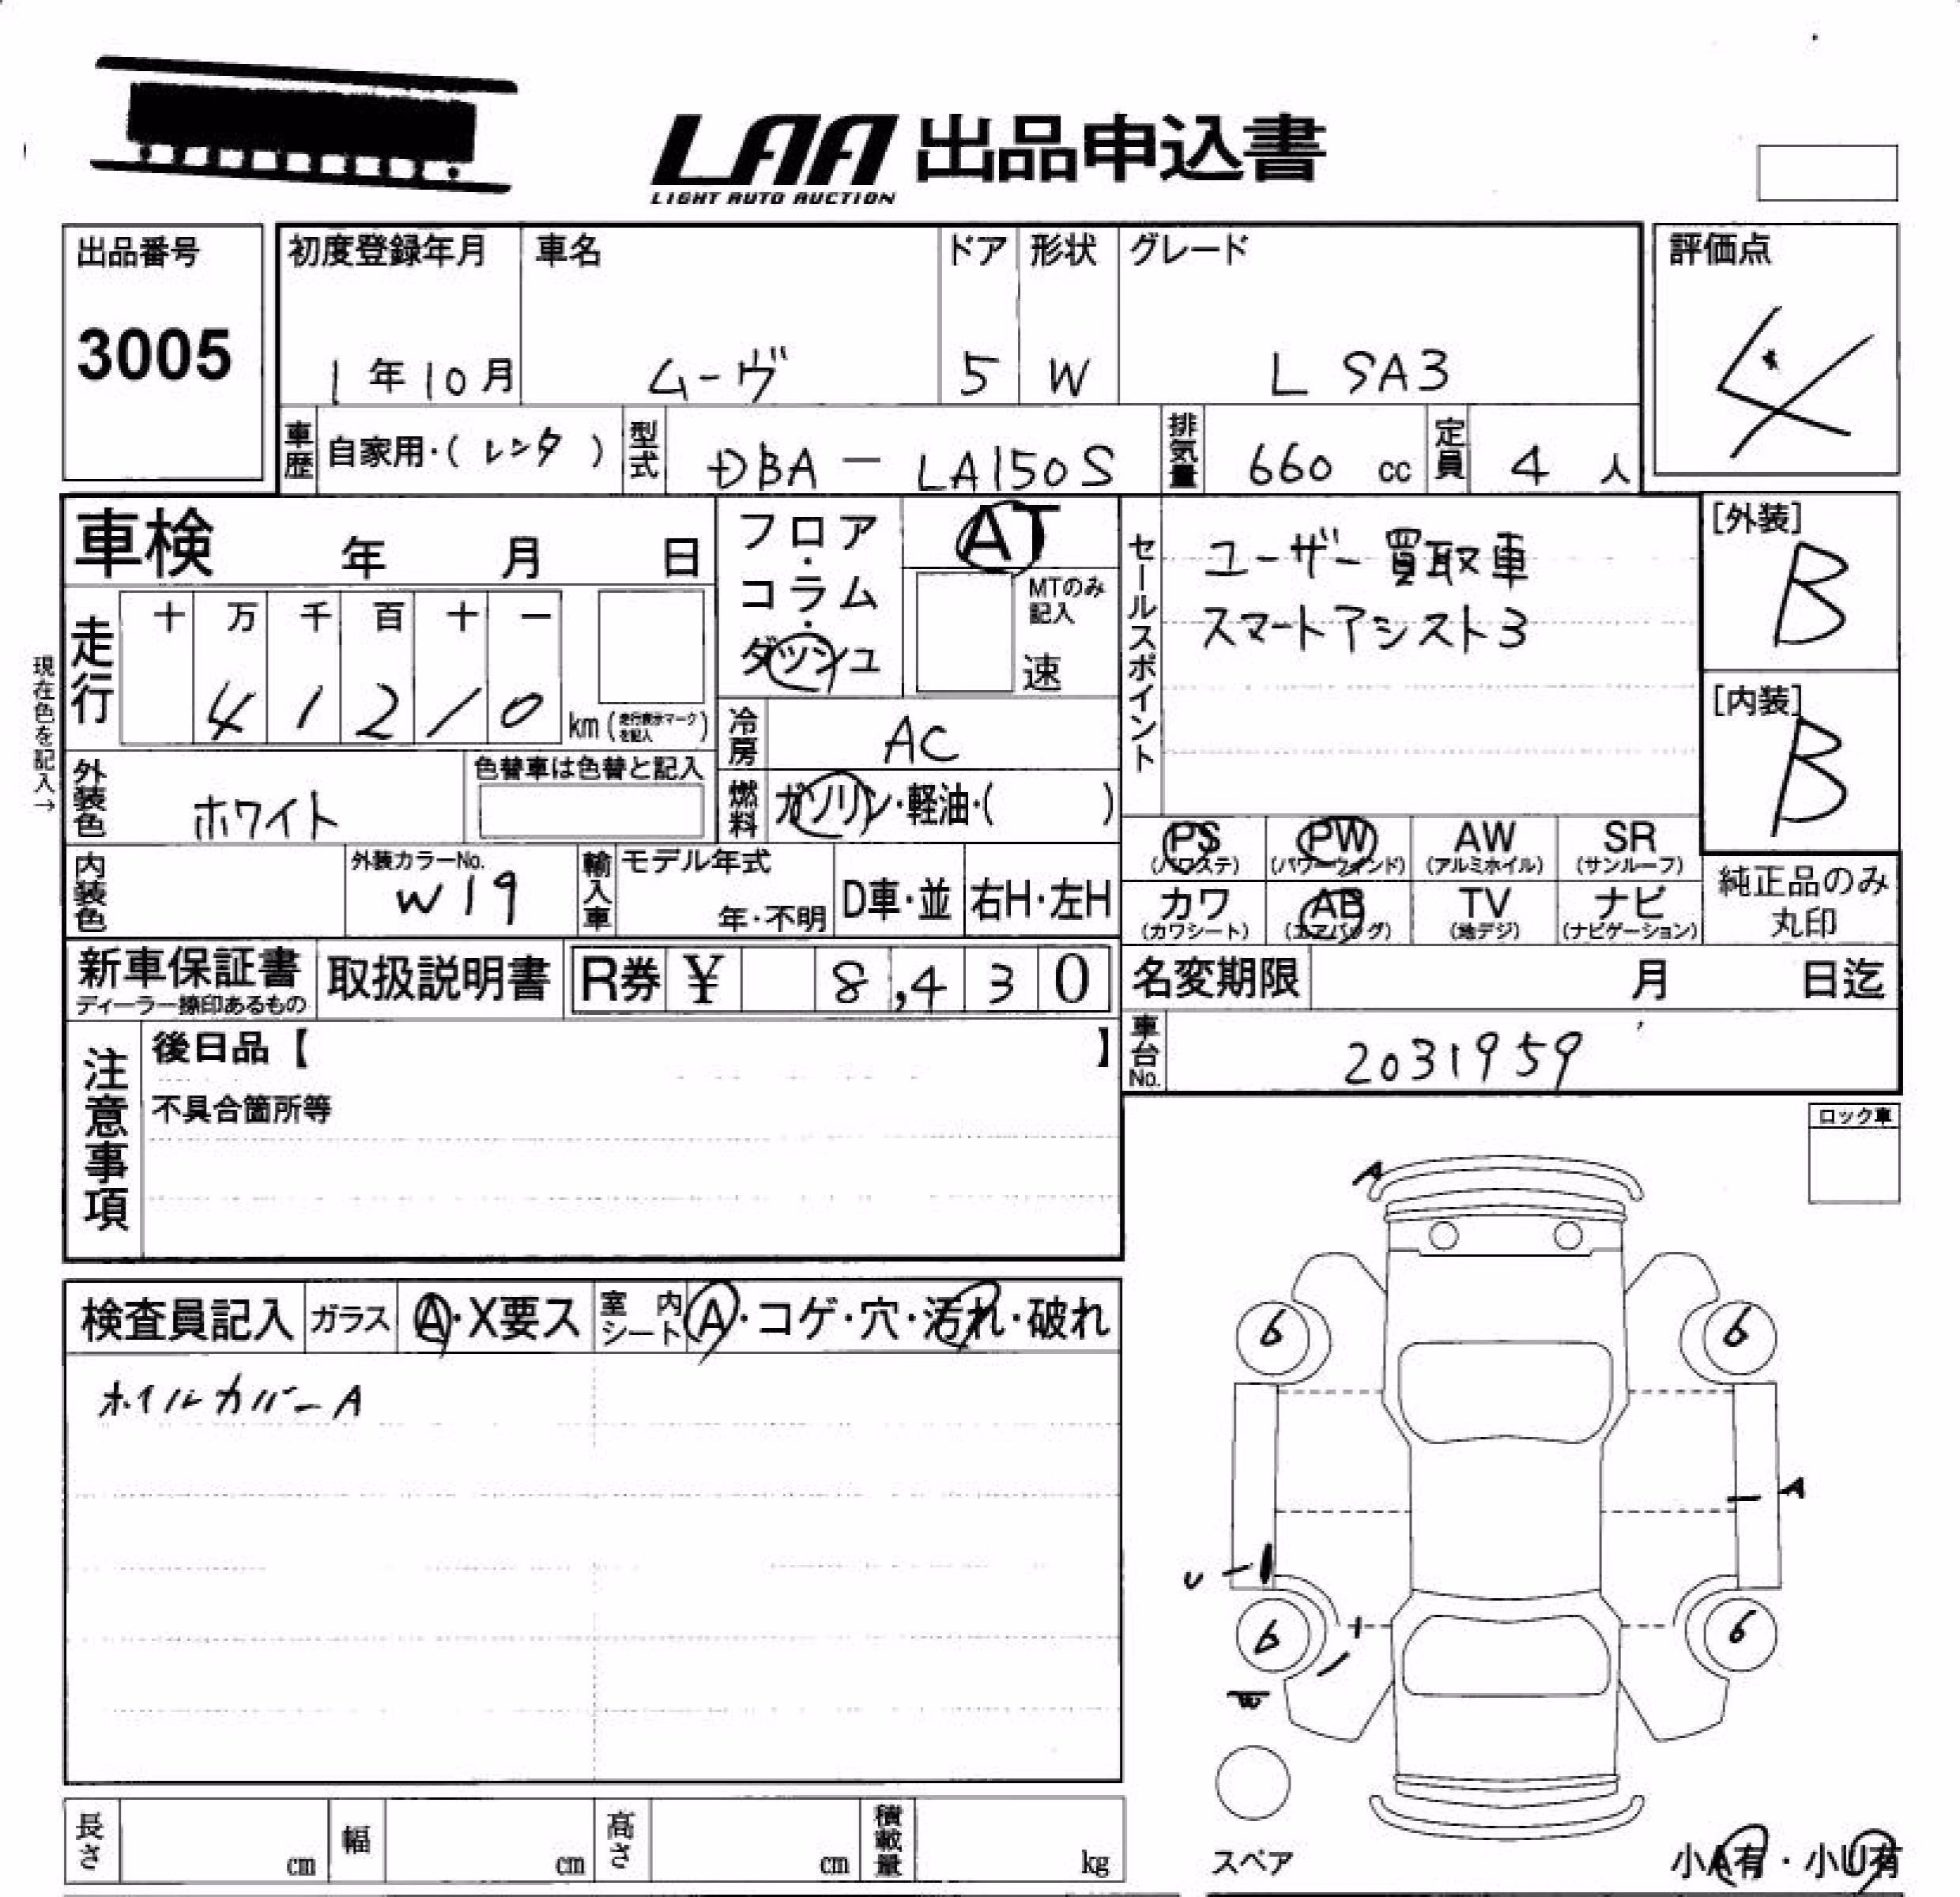 LAA 出品申込書
LIGHT AUTO AUCTION
出品番号
3005
初度登録年月
1年10月
車名
ムーヴ
ドア
5
形状
W
グレード
L SA3
評価点
4
車歴
自家用・(レンタ)
型式
DBA－LA150S
排気量
660 cc
定員
4 人
車検 年 月 日
フロア・コラム・ダッシュ
AT
MTのみ記入
速
セールスポイント
ユーザー買取車
スマートアシスト3
[外装]
B
[内装]
B
現在色を記入→
走行
十 万 千 百 十 一
4 1 2 1 0
km(走行表示マークを記入)
冷房
AC
外装色
ホワイト
色替車は色替と記入
燃料
ガソリン・軽油・( )
PS (パワステ)
PW (パワーウィンド)
AW (アルミホイル)
SR (サンルーフ)
カワ (カワシート)
AB (エアバッグ)
TV (地デジ)
ナビ (ナビゲーション)
純正品のみ
丸印
内装色
外装カラーNo.
W19
輸入車
モデル年式
年・不明
D車・並
右H・左H
新車保証書
ディーラー捺印あるもの
取扱説明書
R券 ¥ 8,430
名変期限 月 日迄
車台No.
2031959
注意事項
後日品【 】
不具合箇所等
ロック車
検査員記入
ガラス
A・X要ス
室内シート
A・コゲ・穴・汚れ・破れ
ホイルカバーA
A
6
6
A
U
6
6
スペア
小A有・小U有
長さ cm
幅 cm
高さ cm
積載量 kg